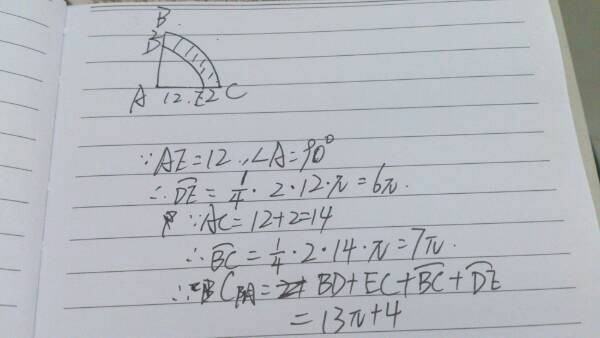 B
D
A 12. E 2 C
∵AE=12,∠A=90°
∴⌒DE=1/4·2·12·π=6π.
∵AC=12+2=14
∴⌒BC=1/4·2·14·π=7π.
∴C阴=BD+EC+⌒BC+⌒DE
=13π+4